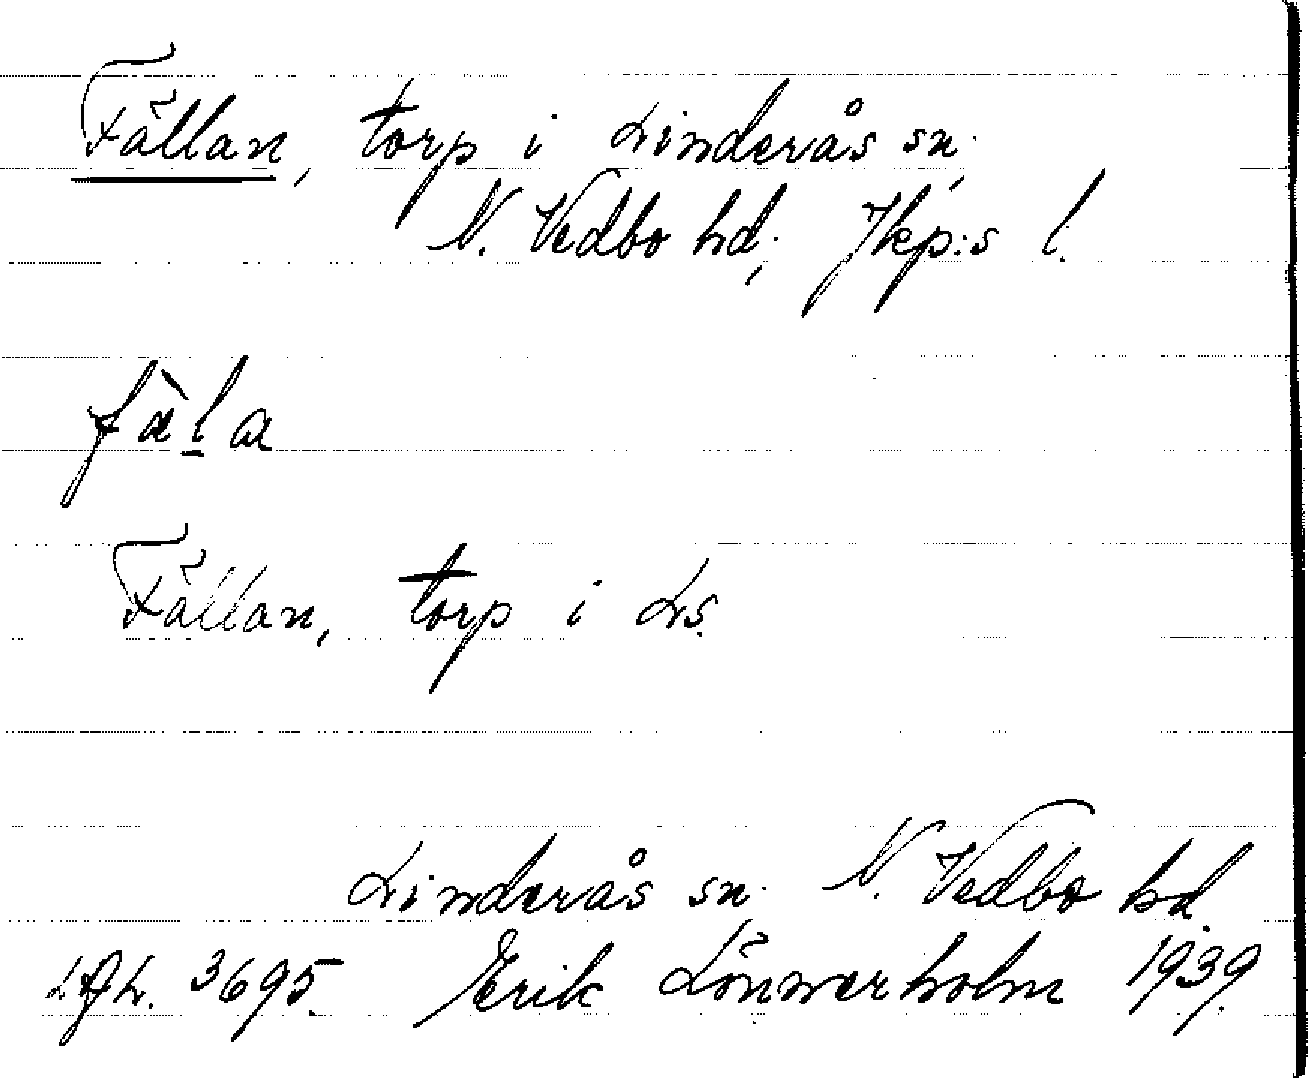 Fällan, torp i Linderås sn.,
N. Vedbo hd., Jkp:s l.
fàḻa
Fällan, torp i Ls.
Linderås sn. N. Vedbo hd.
3695. Erik Lönnerholm 1939.